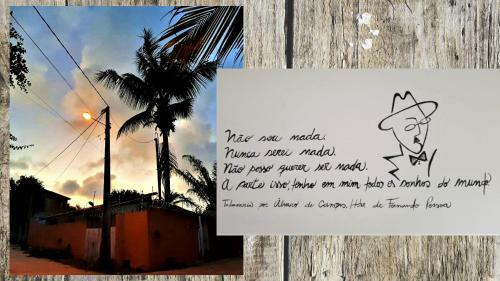 Não sou nada.
Nunca serei nada.
Não posso querer ser nada.
A parte isso, tenho em mim todos os sonhos do mundo
por Álvaro de Campos, de Fernando Pessoa